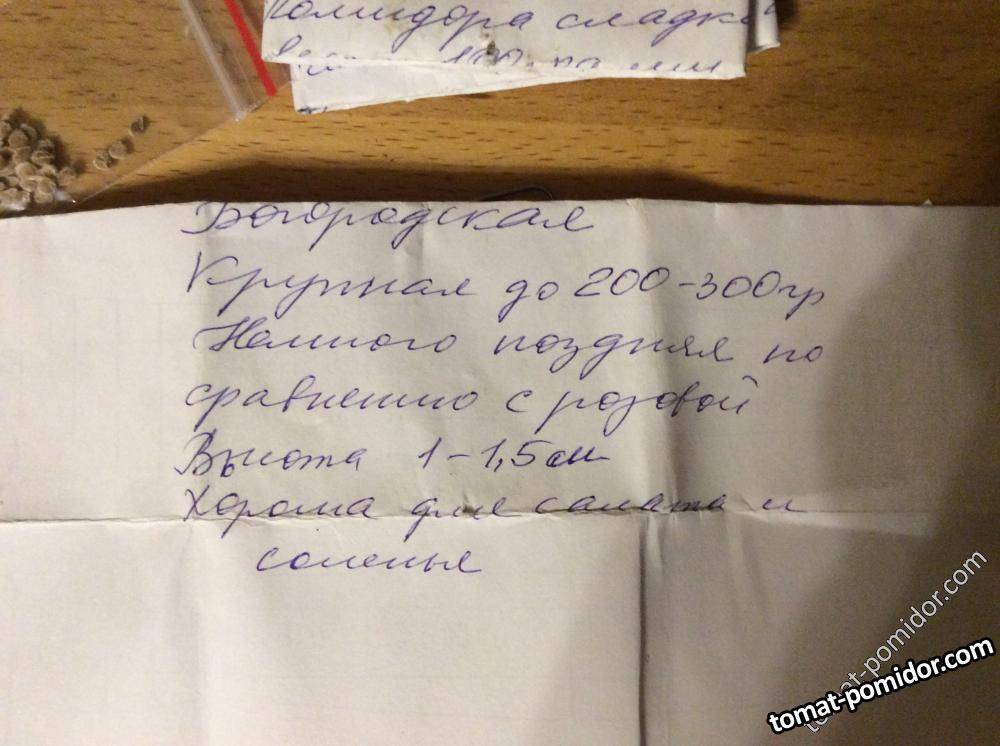 Помидора сладк
100
Богородская
Крупная до 200-300гр
Немного поздняя по
сравнению с розовой
Высота 1-1,5см
Хороша для салата и
соленья
tomat-pomidor.com
tomat-pomidor.com